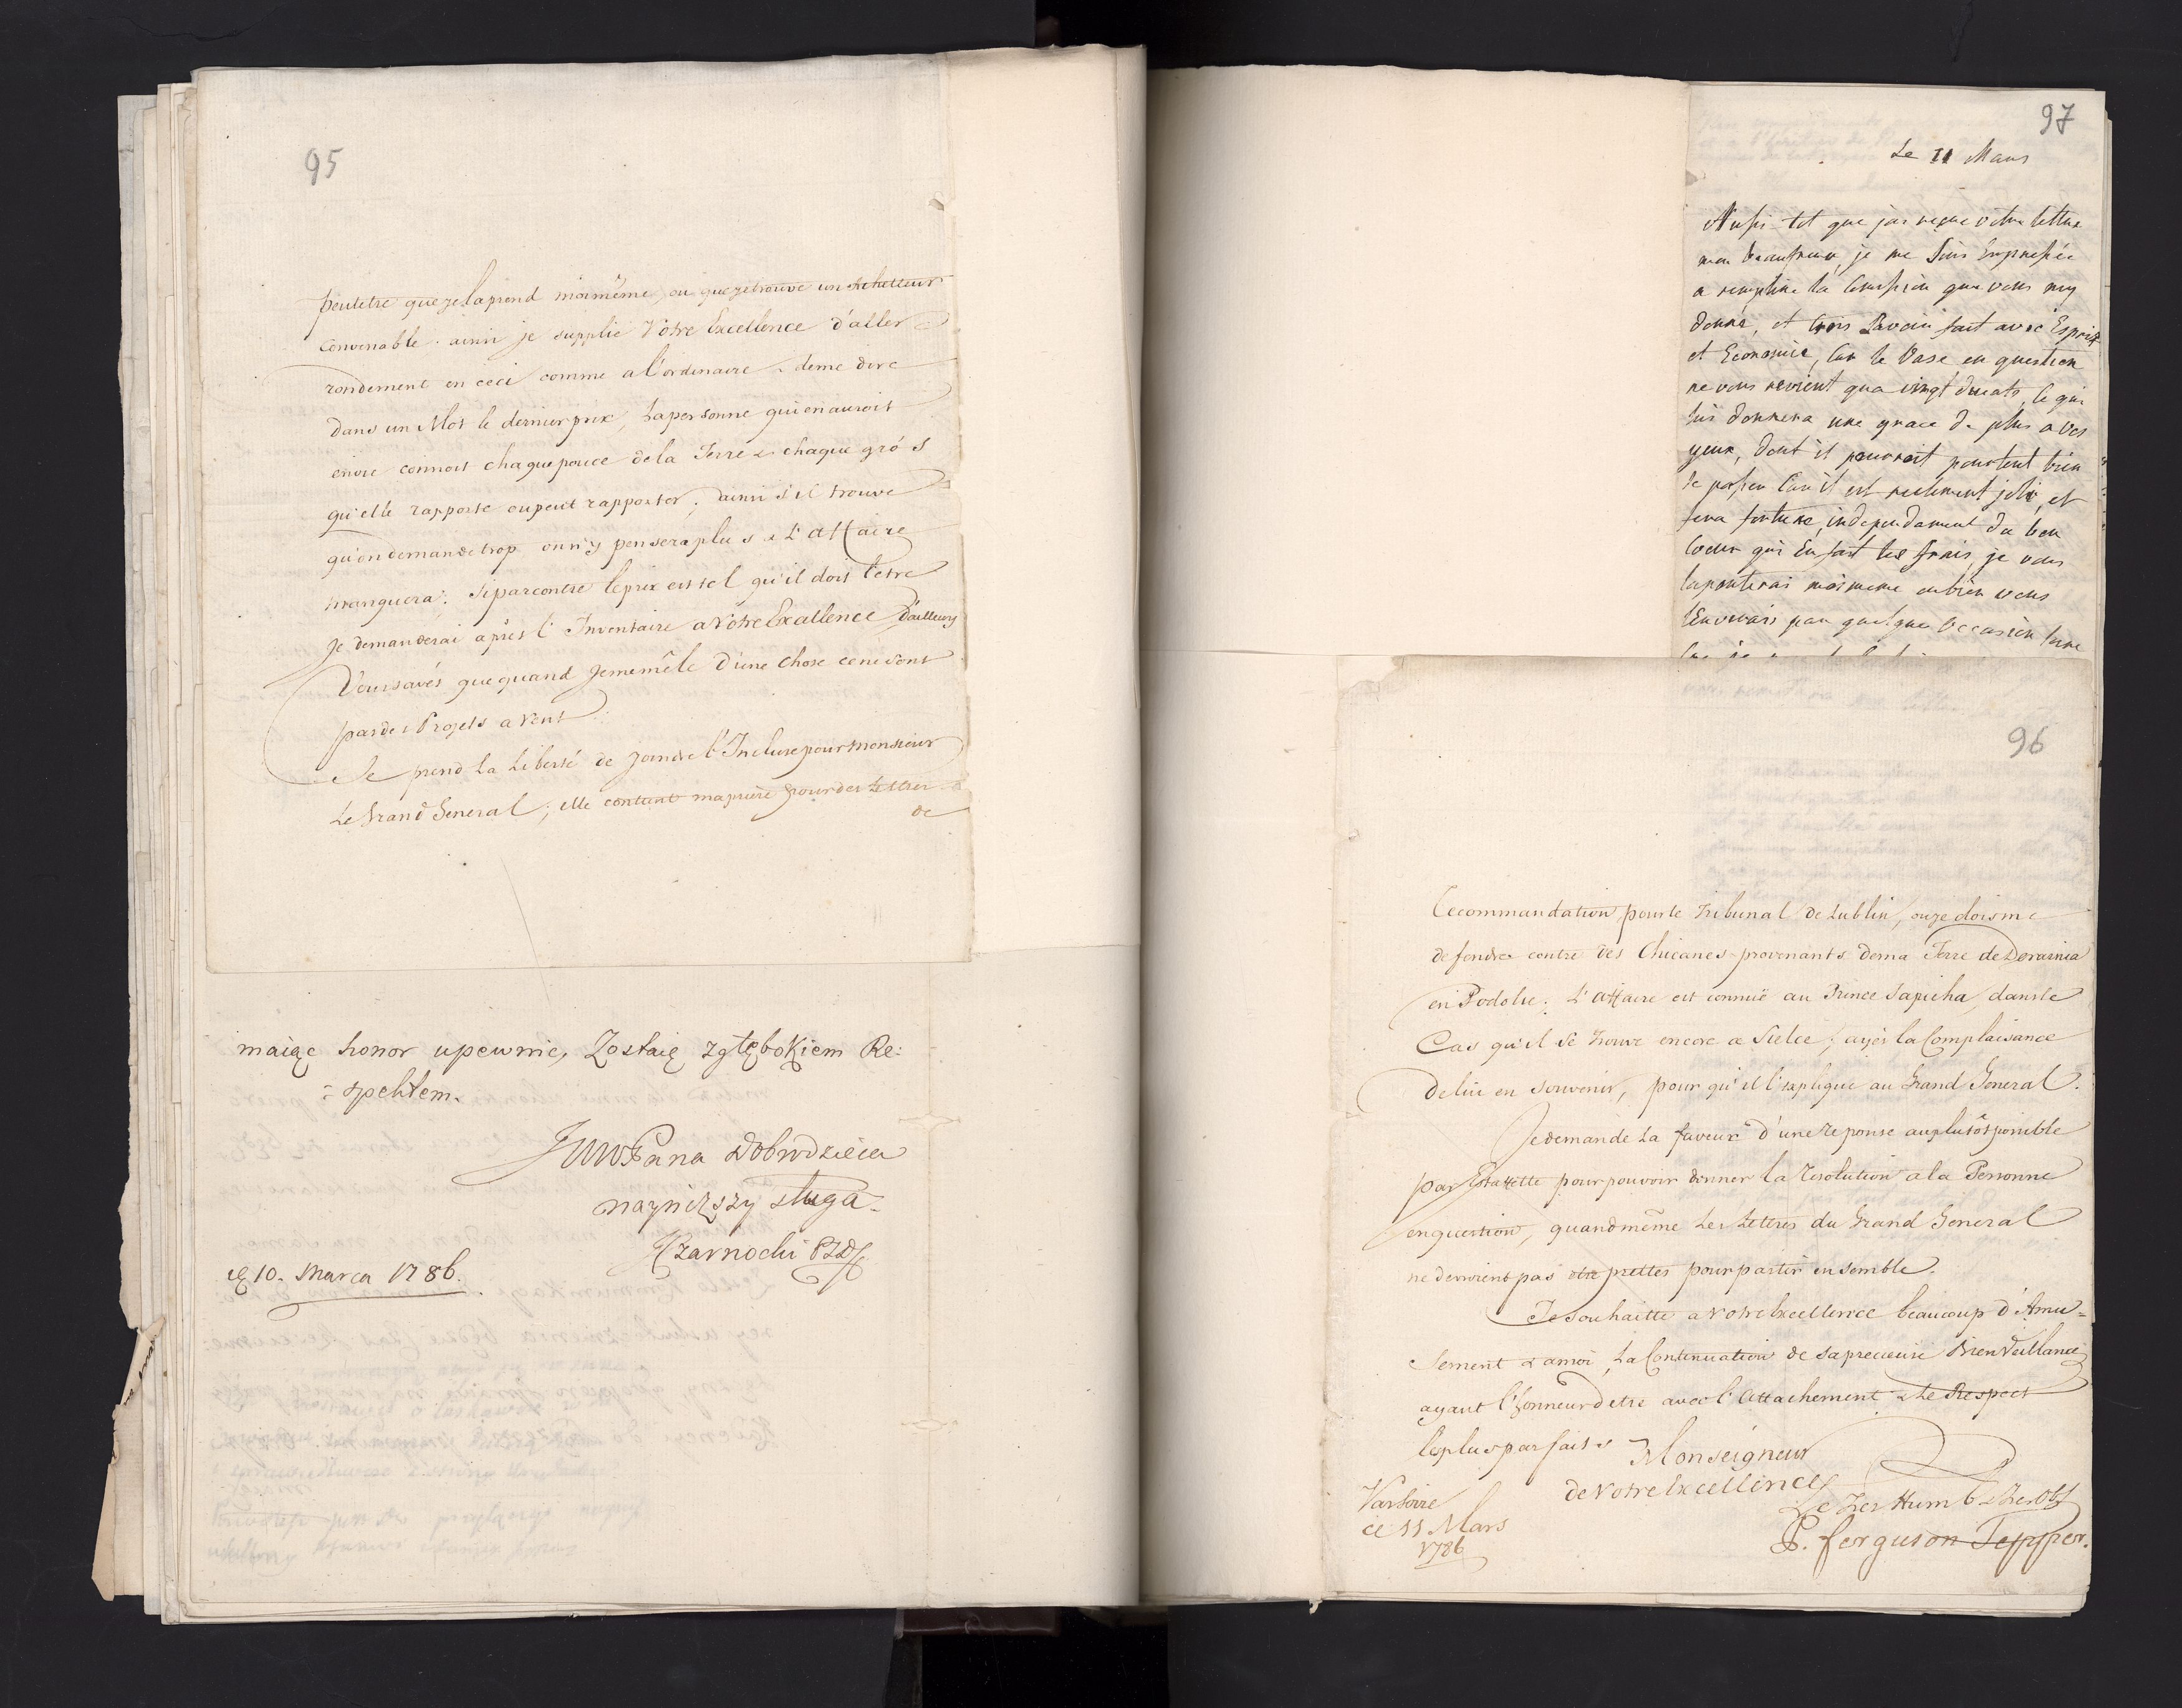 95
peutetre que je la prend moi même, ou que je trouve un Achetteur
convenable. ainsi je supplie Votre Excellence d'aller
rondement en ceci comme a l'ordinaire & deme dire
dans un Mot le dernier prix, la personne qui en auroit
envie connoit chaque pouce de la Terre & chaque grós
qu'elle rapporte ou peut rapporter; ainsi s'il trouve
qu'on demande trop on n'y pensera plus & l'affaire
manquera: si par contre le prix est tel qu'il doit l'etre
Je demanderai après l'Inventaire a Votre Excellence d'ailleurs
Vous savés que quand Je me mêle d'une chose ce ne sont
pas des Projets a Vent
Je prend la Liberté de joindre l'Incluse pour Monsieur
Le Grand General; elle contient ma prière pour des Lettres
de
maiąc honor upewnic, Zostaię zgłębokiem Re:
:spektem.
JWW Pana Dobrodzieia
naynizszy sługa.
Czarnocki
10. Marca 1786.
97
Le 11 Mars
Aussi-tot que jai reçue votre lettre
mon beaufrere, je me suis Empressée
a remplire la Comission que vous my
donné, et crois Lavoir fait avec Esprit
et Economie, Car le Vase en question
ne vous revient qua vingt ducats, ce qui
lui donnera une grace de plus a vos
yeux, dont il pouroit pourtent bien
se passer Car il est reelement joli, et
fera fortune, independament du bon
Coeur qui En fait les frais, je vous
laporterai moimeme oubien vous
lEnverais par quelque occasion sure
96
Recommandation pour le Tribunal de Lublin, ou je dois me
defendre contre des Chicanes provenants de ma Terre de Deraznia
en Podolie. L'affaire est connuë au Prince Sapieha, dans le
Cas qu'il se trouve encore a Sielce; ayés la Complaisance
de lui en souvenir, pour qu'il l'explique au Grand General.
Je demande la faveur d'une Reponse au plutôt possible
par Estaffette pour pouvoir donner la Resolution a la Personne
en question, quand même les Lettres du Grand General
ne devroient pas etre prettes pour partir ensemble.
Je souhaitte a Votre Excellence beaucoup d'Amu=
sement & a moi la Continuation de sa precieuse Bienveillance
ayant l'honneur d'etre avec l'Attachement & le Respect
les plus parfaits
Monseigneur
de Votre Excellence
Le Tres Humb & Tres Ob
P. ferguson Tepper.
Varsovie
ce 11 Mars
1786